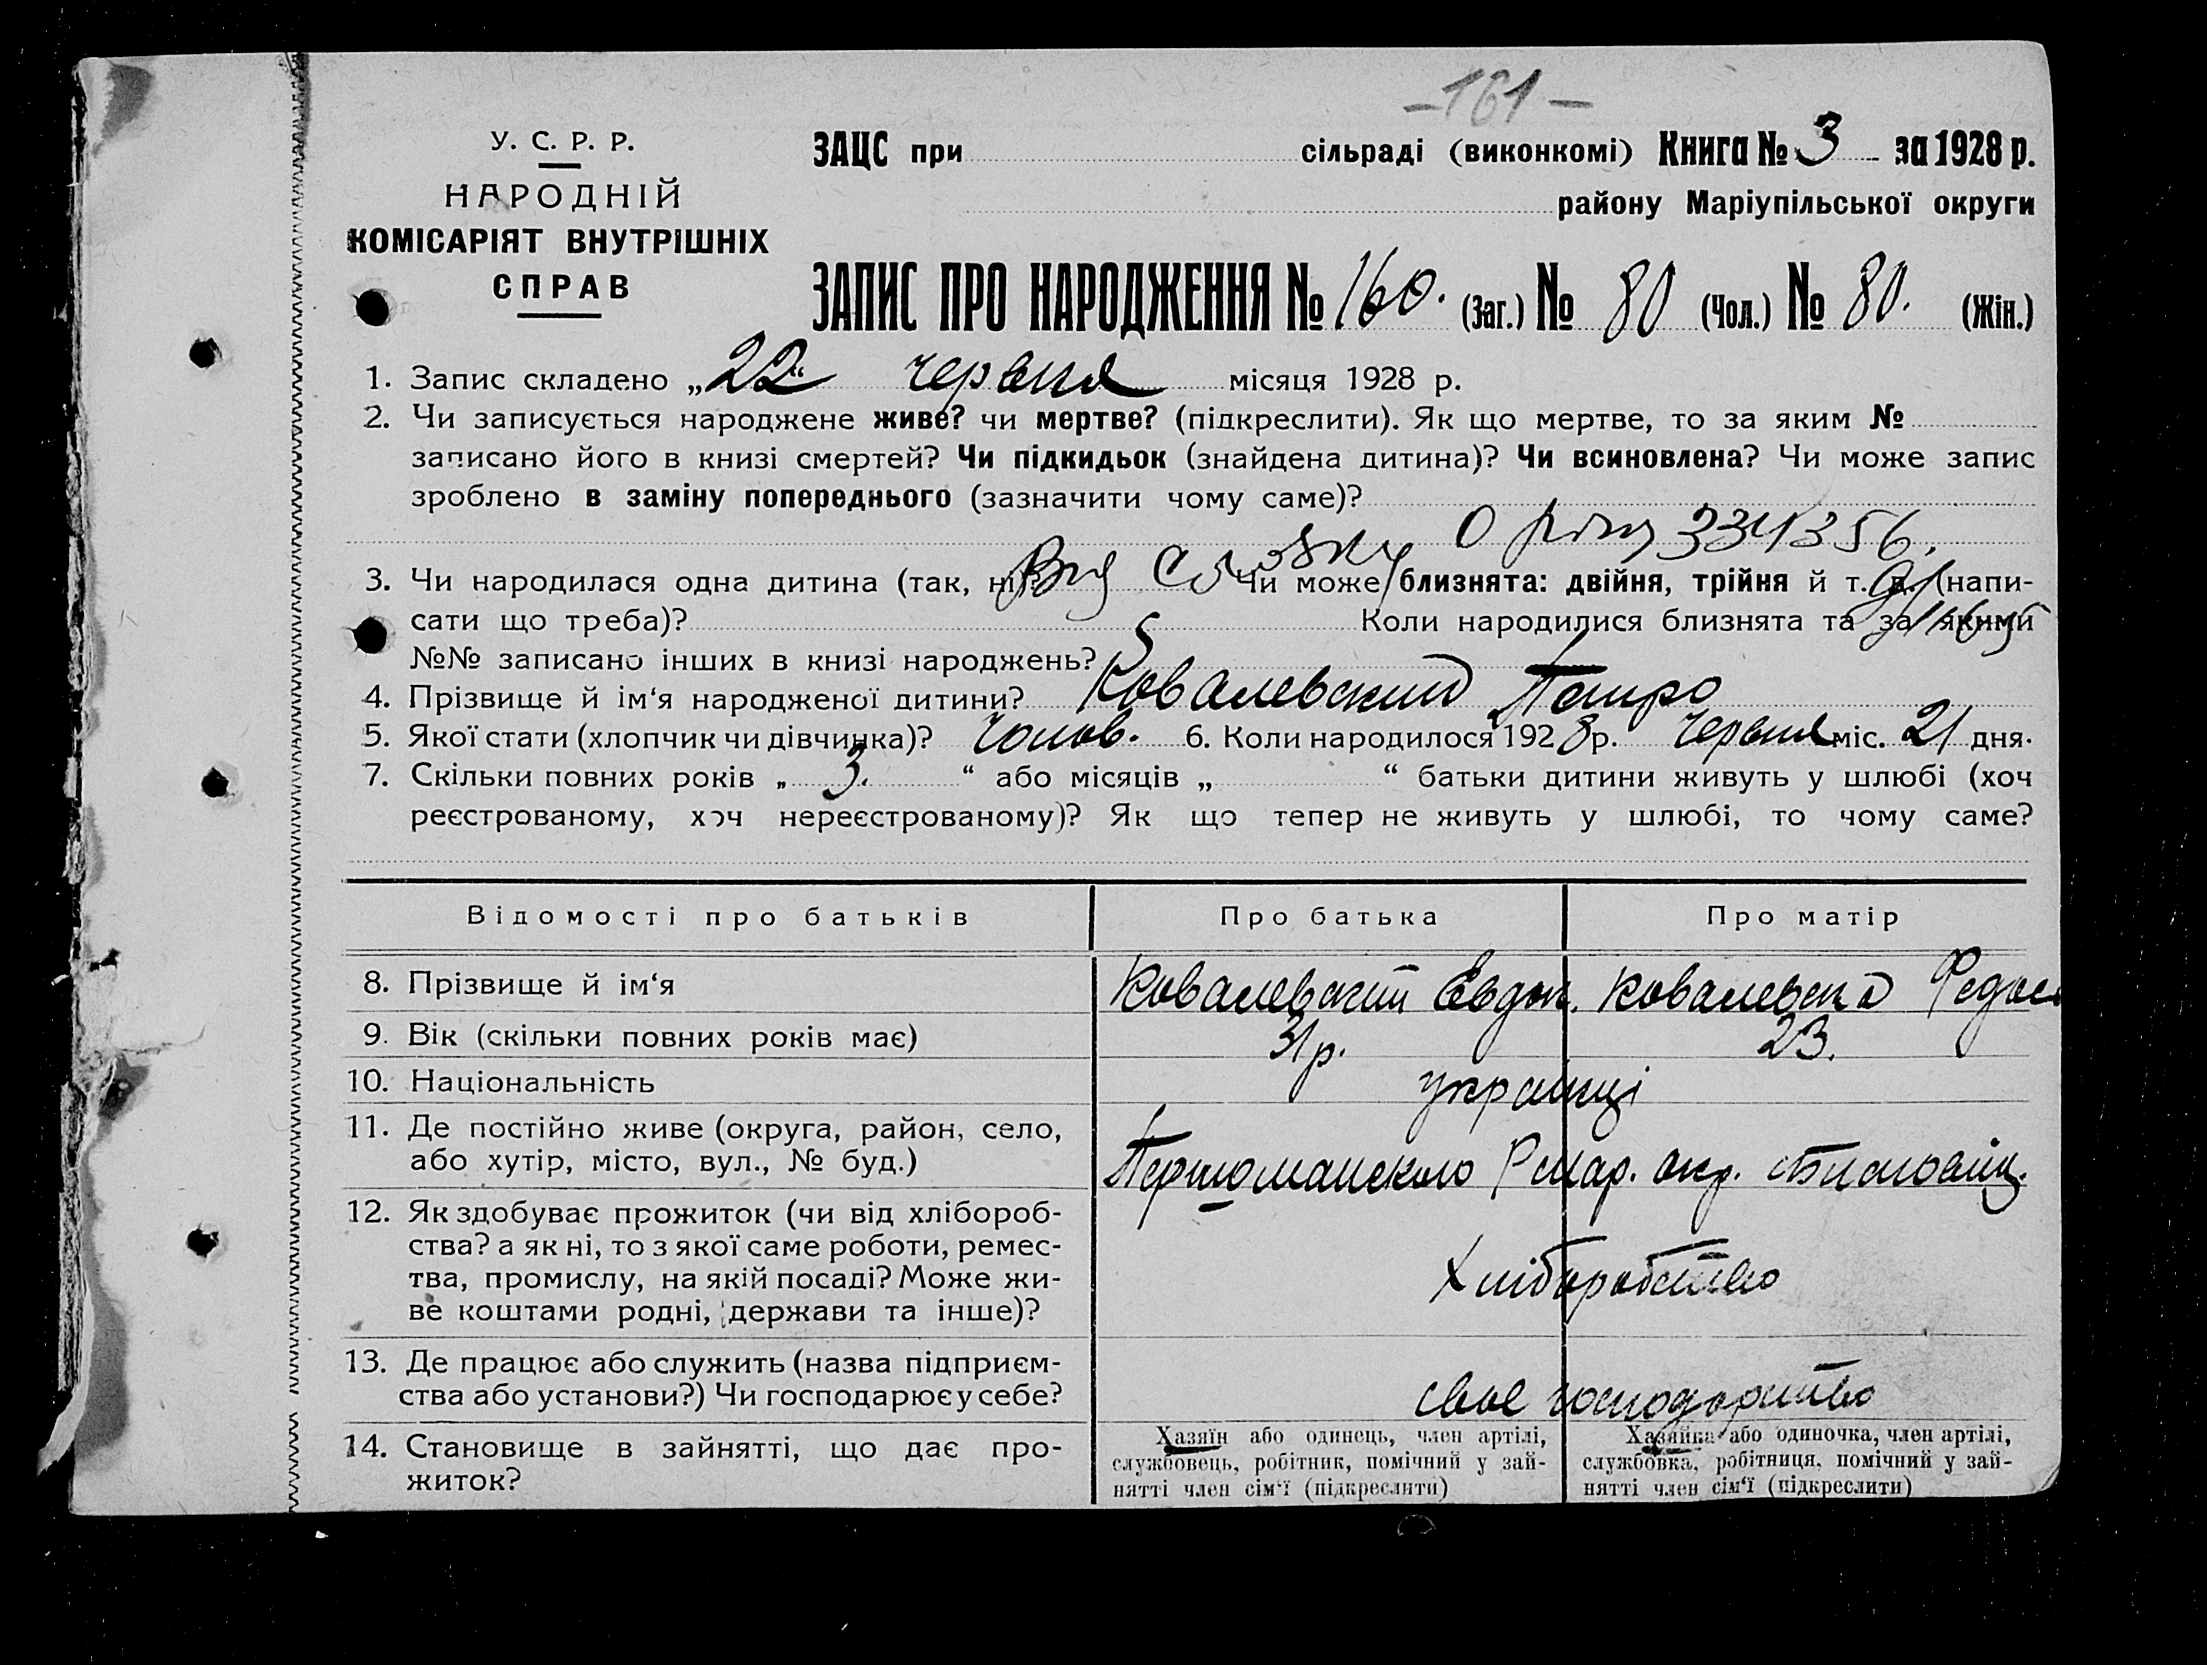 -161-
У. С. Р. Р.
НАРОДНІЙ
КОМІСАРІЯТ ВНУТРІШНІХ
СПРАВ
ЗАЦС при сільраді (виконкомі) Книга № 3 за 1928 р.
району Маріупільської округи
ЗАПИС ПРО НАРОДЖЕННЯ № 160. (Заг.) № 80 (Чол.) № 80. (Жін.)
1. Запис складено „22“ червня місяця 1928 р.
2. Чи записується народжене живе? чи мертве? (підкреслити). Як що мертве, то за яким №
записано його в книзі смертей? Чи підкидьок (знайдена дитина)? Чи всиновлена? Чи може запис
зроблено в заміну попереднього (зазначити чому саме)?
334356.
3. Чи народилася одна дитина (так, ні)? Чи може близнята: двійня, трійня й т. д. (напи-
сати що треба)? Коли народилися близнята та за якими
№№ записано інших в книзі народжень?
4. Прізвище й ім‘я народженої дитини? Ковалевский Петро
5. Якої стати (хлопчик чи дівчинка)? Чолов. 6. Коли народилося 1928 р. червня міс. 21 дня.
7. Скільки повних років „ 3. “ або місяців „ “ батьки дитини живуть у шлюбі (хоч
реєстрованому, хоч нереєстрованому)? Як що тепер не живуть у шлюбі, то чому саме?
Відомості про батьків Про батька Про матір
8. Прізвище й ім‘я Ковалевский Евдок. Ковалевска
9. Вік (скільки повних років має) 31 р. 23.
10. Національність українці
11. Де постійно живе (округа, район, село,
або хутір, місто, вул., № буд.)
12. Як здобуває прожиток (чи від хлібороб-
ства? а як ні, то з якої саме роботи, ремес-
тва, промислу, на якій посаді? Може жи-
ве коштами родні, держави та інше)?
Хліборобство
13. Де працює або служить (назва підприєм-
ства або установи?) Чи господарює у себе?
своє господарство
14. Становище в зайнятті, що дає про-
житок?
Хазяїн або одинець, член артілі,
службовець, робітник, помічний у зай-
нятті член сім‘ї (підкреслити)
Хазяйка або одиночка, член артілі,
службовка, робітниця, помічний у зай-
нятті член сім‘ї (підкреслити)